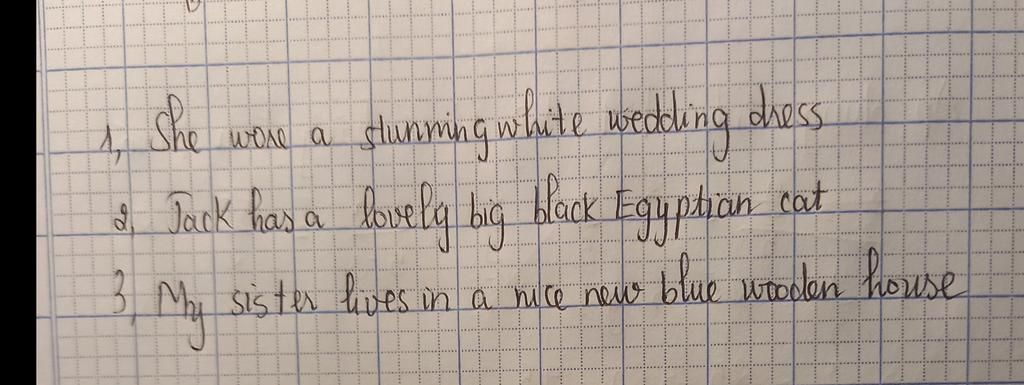 1, She wore a stunning white wedding dress
2, Jack has a lovely big black Egyptian cat
3, My sister lives in a nice new blue wooden house